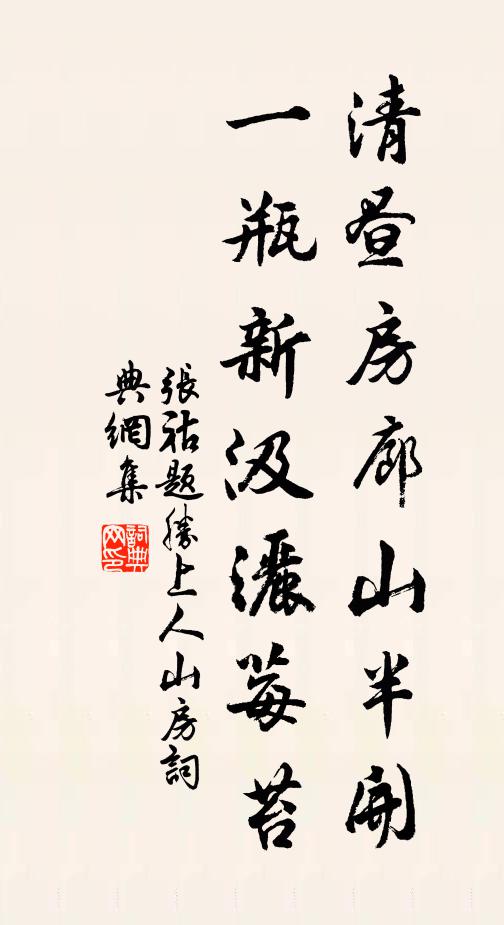 清晝房廊山半開
一瓶新汲灑莓苔
張祜題勝上人山房詞
典網集
詞典網印